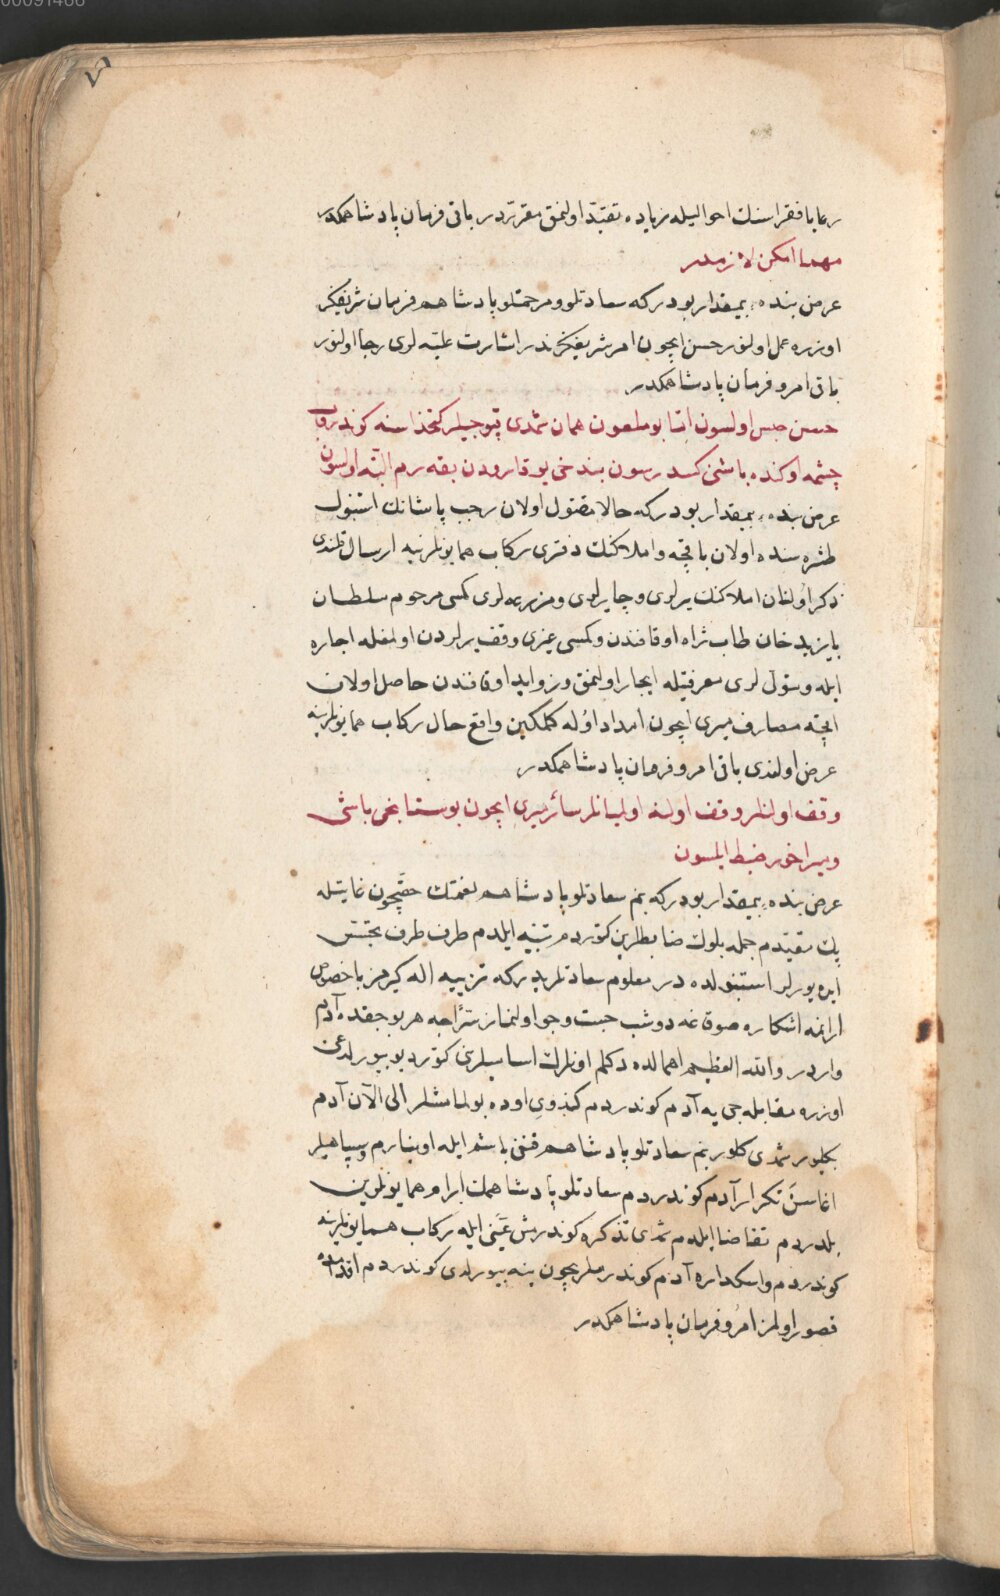 00091486
رعایا فقراسنك احوالیله زیاده تقیّد اولنمق مقرّردر باقی فرمان پادشاهمكدر
مهما امكن لازمدر
عرض بندهٔ بیمقدار بودركه سعادتلو ومرحمتلو پادشاهم فرمان شریفكز
اوزره عمل اولنور حسن ایچون امر شریفكزندر اشارت علیّه لری رجا اولنور
باقی امر و فرمان پادشاهمكدر
حسن حبس اولسون اشا بو ملعون همان شمدی قپوجیلر كتخداسنه كوندروب
چشمه اوكنده باشنی كسدرسون بندخی یوقارودن بقه رم البتّه اولسون
عرض بندهٔ بیمقدار بودركه حالا مقتول اولان رجب پاشانك استنبول
طشره سنده اولان باقچه واملاكنك دفتری ركاب همایونلرینه ارسال قلندی
ذكر اولنان املاكنك یرلری وچایرلری ومزرعه لری كمی مرحوم سلطان
بایزید خان طاب ثراه اوقافندن وكمسی غیری وقف یرلردن اولمغله اجاره
ایله و متولّی لری معرفتیله ایجار اولنمق و زواید اوقافندن حاصل اولان
اقچه مصارف میری ایچون امداد اوله كلمكین واقع حال ركاب همایونلرینه
عرض اولندی باقی امر و فرمان پادشاهمكدر
وقف اولنلر وقف اولنه اولیانلر سائر میری ایچون بوستانجی باشی
ومیراخور ضبط ایلسون
عرض بندهٔ بیمقدار بودركه بنم سعادتلو پادشاهم نعمتك حقّیچون غایتله
پك مقیّدم جمله بلوك ضابطلرین كتوردم تنبیه ایلدم طرف طرف تجسّس
ایده یورلر استنبولده در معلوم سعادتلریدركه تزییه اله كیرمز باخصوص
ارانمه اشكاره صوقاغه دوشب جست وجو اولنماز سرّاجه هر بوجقده آدم
واردر والله العظیم اهمالده دكلم اونلرك اساسیلرنی كتوردیو بیورلدغی
اوزره مقابله جی یه آدم كوندردم كندوی اوده بولمامشلر الی الآن آدم
بكلیور شمدی كلور بنم سعادتلو پادشاهم قنغی باشم ایله اوینارم وسپاهیلر
اغاسنَ تكرار آدم كوندردم سعادتلو پادشاهمك ابرام همایونلرین
بلدردم تقاضا ایلدم شمدی تذكره كوندرمش عَینی ایله ركاب همایونلرینه
كوندردم واسكداره آدم كوندرملریچون ینه بیورلدی كوندردم اقدامده
قصور اولمز امر و فرمان پادشاهمكدر